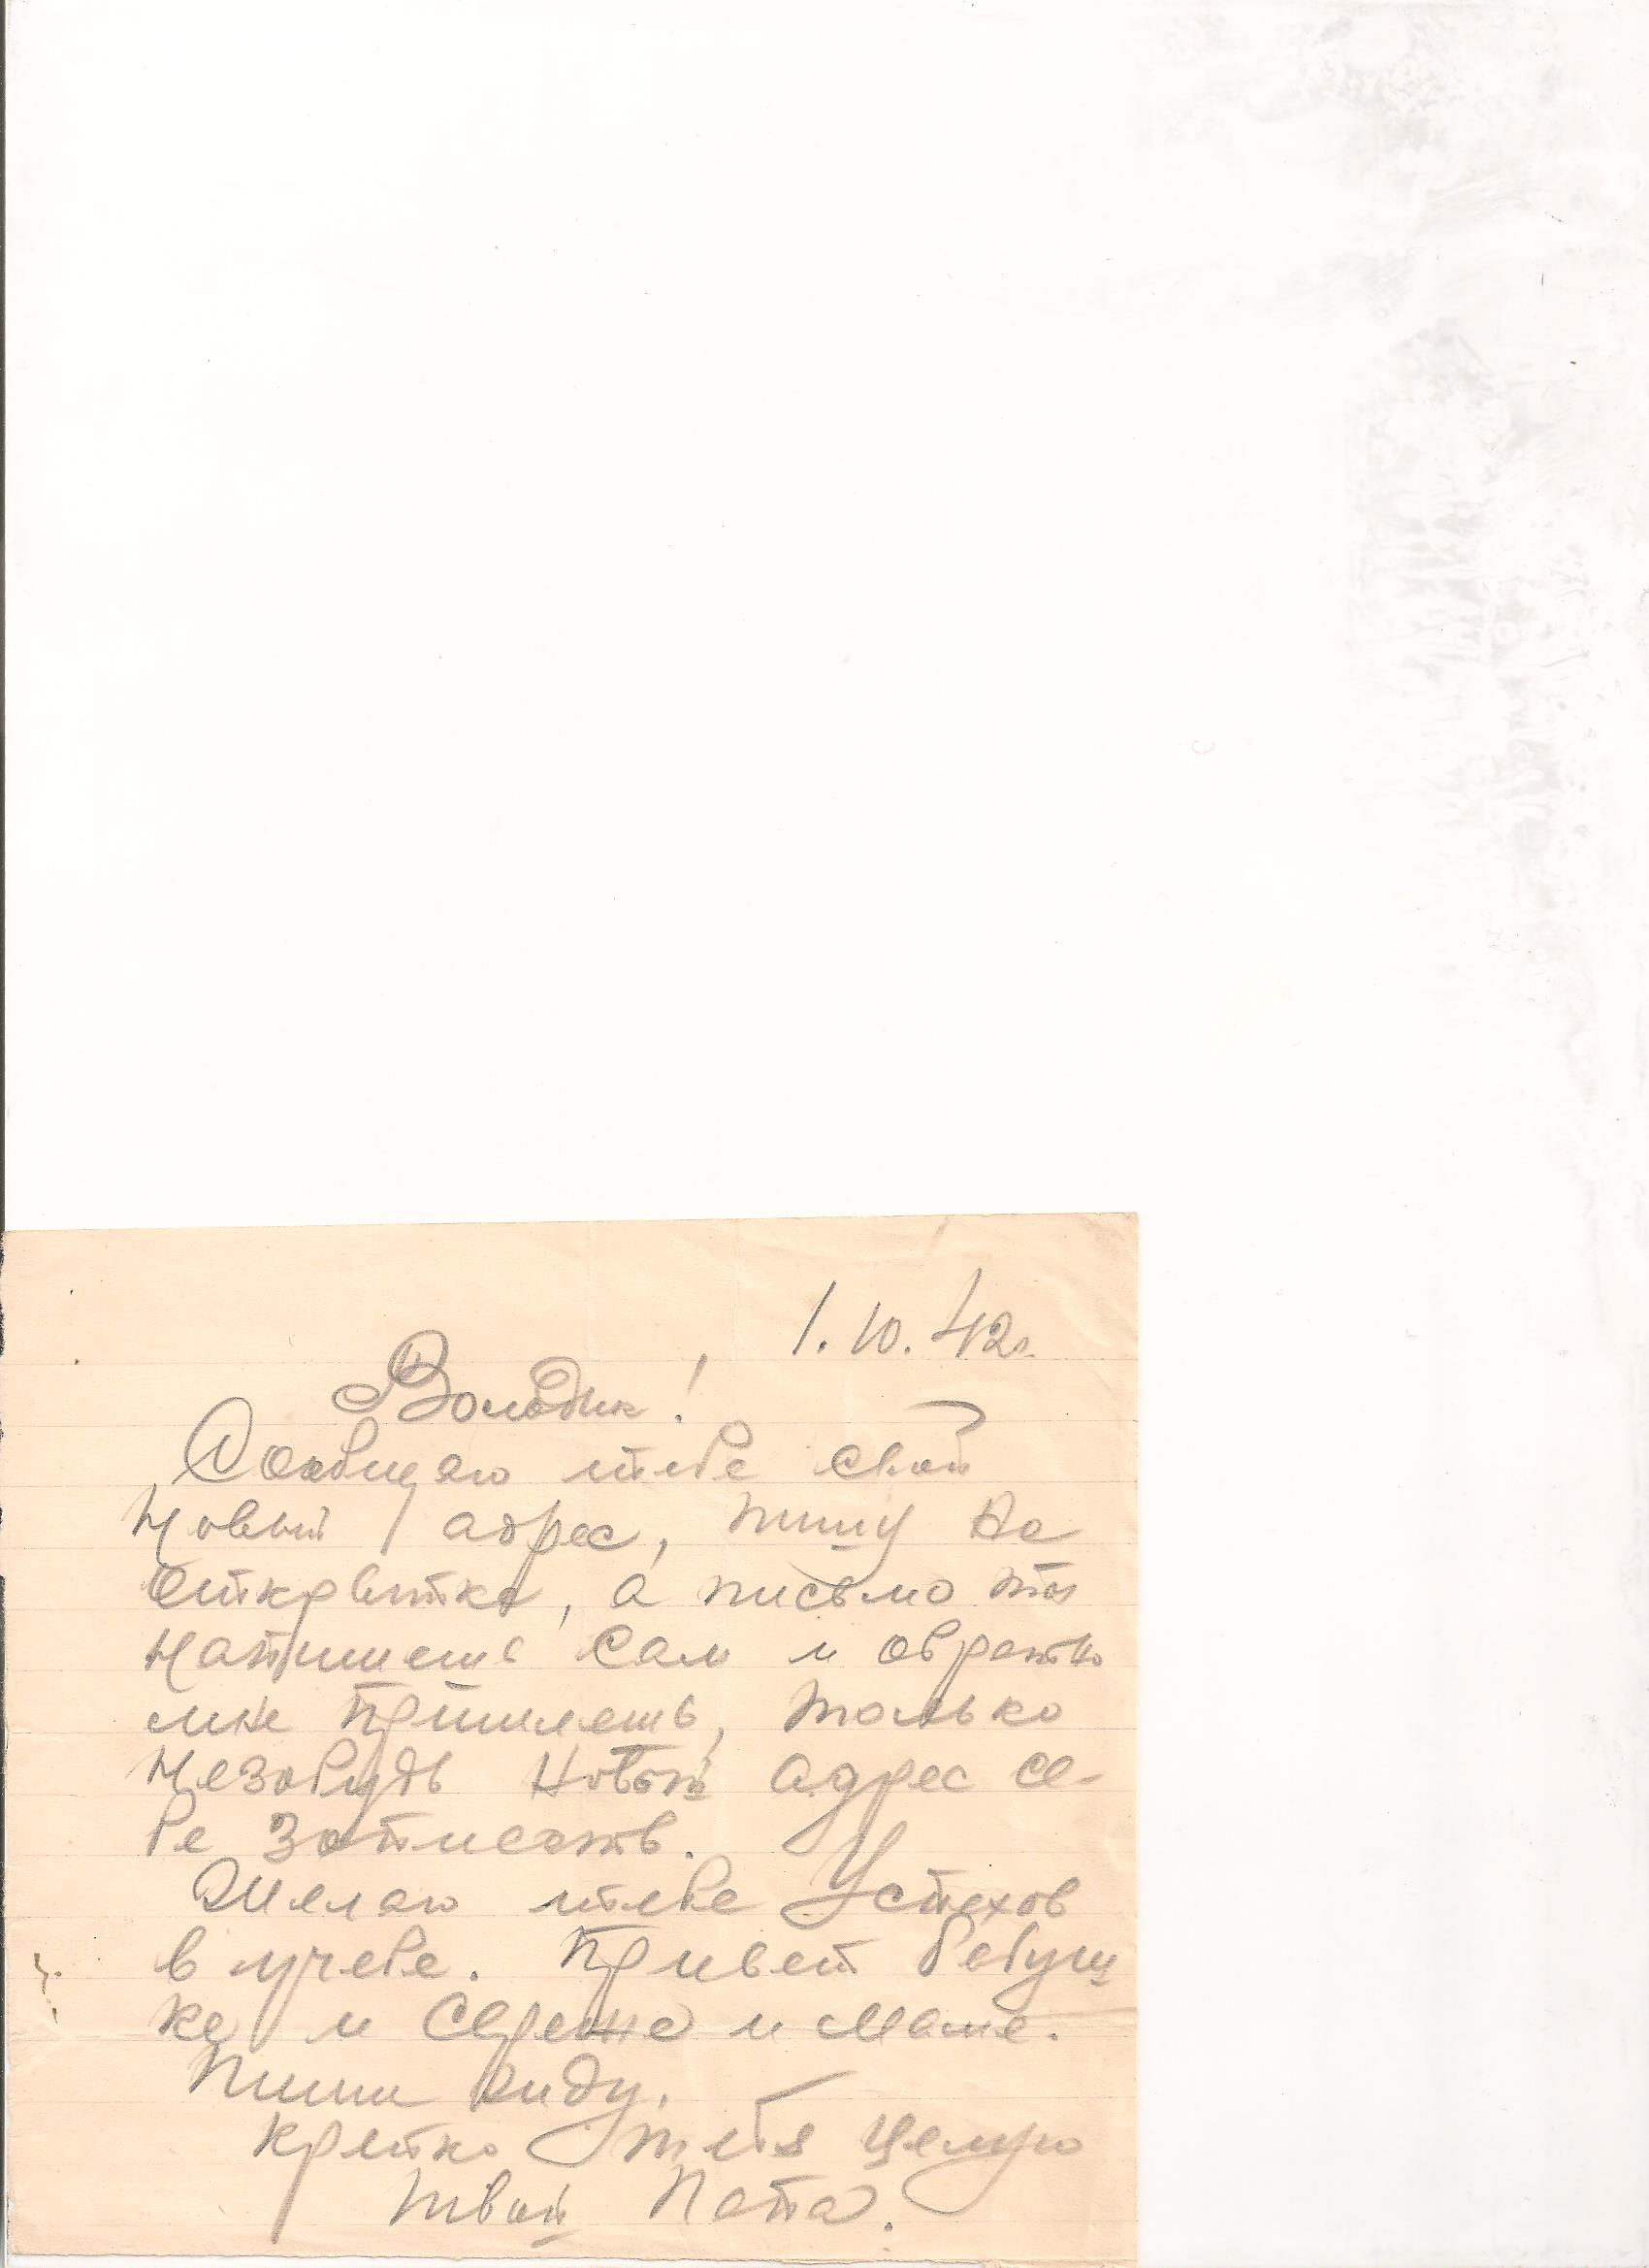 1.10.42г.
Володик!
Сообщаю тебе свой
новый адрес, пишу на
открытке, а письмо ты
напишешь сам и обратно
мне пришлешь, только
незабудь новый адрес се-
бе записать.
Желаю тебе Успехов
в учебе. Привет бабуш
ке и Сереже и маме.
Пиши жду.
Крепко тебя целую
твой Папа.